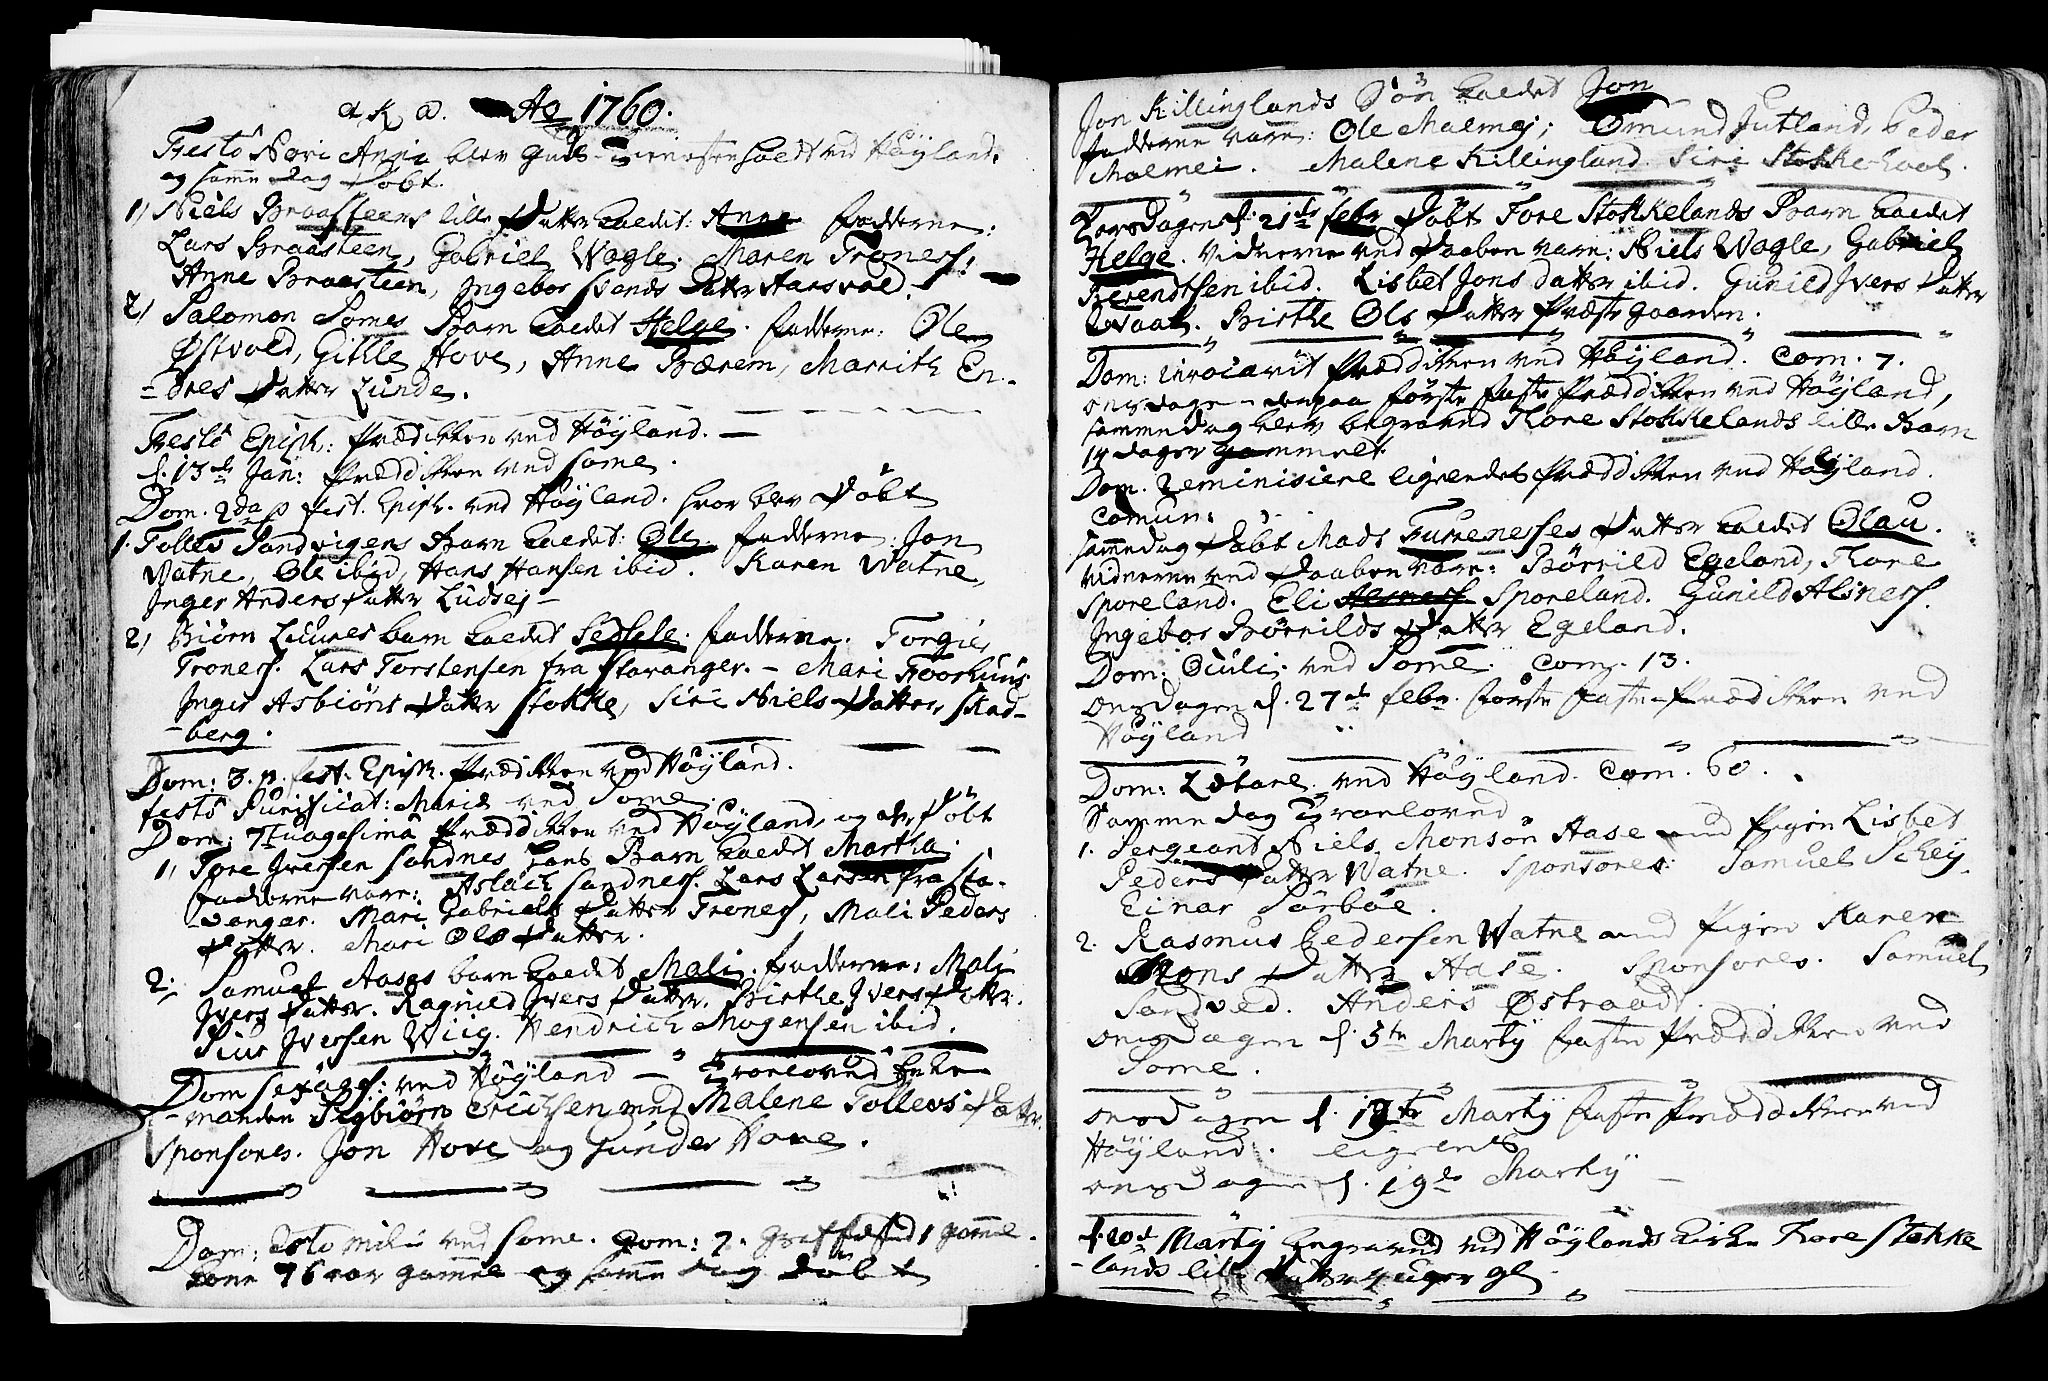 Ao 1760.
Festo Novi Anni blev Guds tienesten holdt ved Höyland.
og samme dag Döbt.
1) Niels Braasteens lille Datter kaldet: Anne fadderne:
Lars Braasteen, Gabriel Wagle. Maren Troness,
Anne Braasteen, Ingebor Svends Datter Aarsvold.
2) Salomon Somes Barn kaldet Helge. fadderne: Ole
Østvold, Gitle Hove, Anne Bærem, Marrith En-
-dres Datter Lunde.
Festo Epiph: Prædikken ved Höyland.
d. 13de Jan: Prædikken ved Some.
Dom. 2da p fest. Epiph. ved Höyland. hvor blev Döbt
1. Tollev Sandvigens Barn kaldet: Ole. fadderne: Jon
Watne, Ole ibid, Hans Hansen ibid. Karen Watne,
Inger Anders Datter Ludsej
2) Biörn Luures barn kaldet Sedsele. fadderne: Torgier
Troness. Lars Torstensen fra Stavanger. - Mari Foorhuus
Inger Asbiörns Datter Stokke, Siri Niels Datter Skad-
-berg.
Dom: 3. p. fest. Epiph. Prædikken ved Höyland.
festo Purificat: Mariæ ved Some.
Dom: 7tuagesima Præddikken ved Höyland, og der Döbt
1) Tore Iversen Sandnes hans Barn kaldet Martha.
fadderne vare: Aslach Sandness. Lars Larsen fra Sta-
-vanger. Mari Gabriels Datter Troness, Mali Peders
Datter. Mari Ols Datter.
2. Samuel Aases barn kaldet Mali. fadderne: Mali
Ivers Datter. Ragnild Ivers Datter. Birthe Ivers Datter.
Siur Iversen Wiig. Hendrich Mogensen ibid.
Dom Sexages: ved Höyland - Troeloved Enke
-manden Sigbiörn Erichsen med Malene Tollevs Datter.
Sponsores. Jon Hove og Gunder Hove.
Dom: Esto mihi ved Some. Com: 7. Graffæsted 1 gamel
kone 76 aar gamel og samme dag Döbt
Jon Killinglands Sön kaldet Jon
fadderne vare: Ole Malmej; Omund Jutland, Peder
Malmei. Malene Killingland. Siri Stokke
Torsdagen d. 21de febr Döbt Tore Stokkelands Barn kaldet
Helge. Vidnerne ved Daaben vare: Niels Wagle, Gabriel
Berendtsen ibid. Lisbet Jons datter ibid. Gunild Ivers Datter
Birthe Ols Datter Præste gaarden.
Dom: invocavit Præddikken ved Höyland. Com. 7.
onsdagen derpaa förste faste Præddikken ved Höyland,
samme dag blev begraved Tore Stokkelands lille Barn
14 dager gammelt.
Dom. Reminisiere ligeledes Præddikken ved Höyland.
Comun:
samme dag Döbt Mads Furenesses Datter kaldet Olau.
vidnerne ved Daaben vare: Börrild Egeland, Tore
Sporeland. Eli Sporeland. Gunild Alsness.
Ingebor Börrilds Datter Egeland.
Dom: Oculi. ved Some. Com. 13.
onsdagen d. 27de febr. förste faste Prædikken ved
Höyland
Dom: Lætare. ved Höyland. Com. 60.
Samme dag Troeloved
1. Sergeant Niels Monsön Aase med Pigen Lisbet
Peders Datter Watne. Sponsores: Samuel Schej.
Einar Sörböe.
2. Rasmus Pedersen Watne med Pigen Karen
Mons Datter Aase. Sponsores. Samuel
Sandved. Anders Østraadt.
onsdagen d. 5te Martij faste Præddikken ved
Some.
onsdagen d. 12te Martij faste Præddikken ved
Höyland. ligeens
onsdagen d. 19de Martij
d. 20de Martij begraved ved Höylands kirke Tore Stokke
-lands lille Datter 4 uger gl.